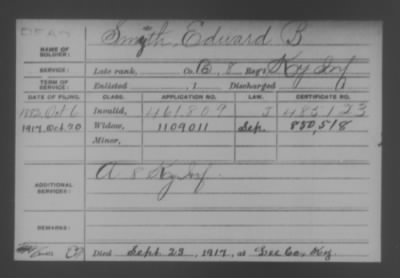 DEAD
NAME OF SOLDIER: Smyth, Edward B.
SERVICE: Late rank, Co. B, 8 Reg't Ky Inf
TERM OF SERVICE: Enlisted , 1 Discharged , 1
DATE OF FILING. CLASS. APPLICATION NO. LAW. CERTIFICATE NO.
Oct 6 Invalid, 461809 J 485123
1917, Oct. 20 Widow, 1109011 Sep. 850,518
Minor,
ADDITIONAL SERVICES: A 8 Ky Inf.
REMARKS:
Died Sept. 23, 1917, at Lee Co., Ky.